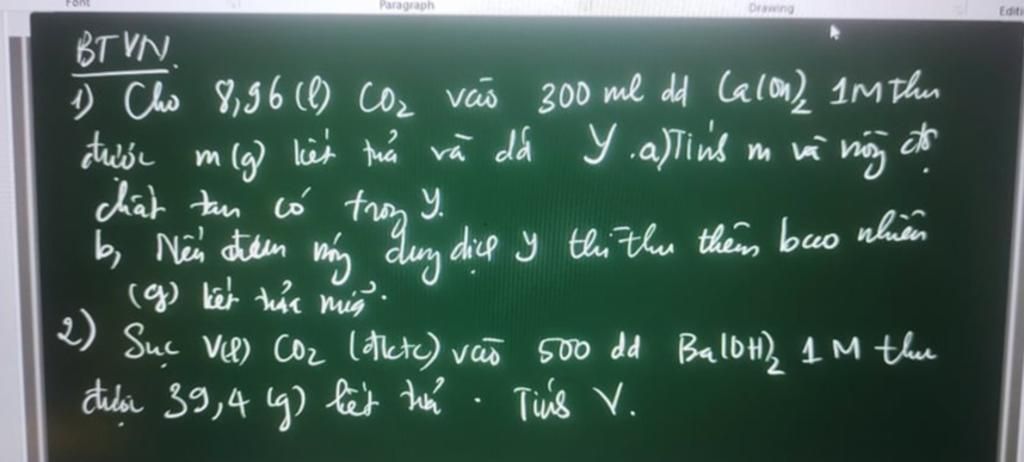 Font
Paragraph
Drawing
Editi
BTVN.
1) Cho 8,96 (l) CO2 vào 300 ml dd Ca(OH)2 1M thu
được m (g) kết tủa và dd Y. a) Tính m và nồng độ
chất tan có trong Y.
b, Nếu đun nóng dung dịch Y thì thu thêm bao nhiên
(g) kết tủa nữa.
2) Sục V(l) CO2 (đktc) vào 500 dd Ba(OH)2 1M thu
được 39,4 (g) kết tủa. Tính V.